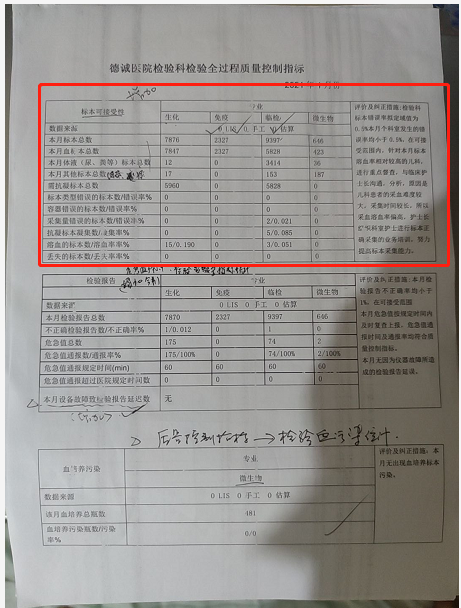 德诚医院检验科检验全过程质量控制指标
2021年1月份
标本可接受性 专业
生化 免疫 临检 微生物
数据来源 0 LIS 0 手工 0 估算
本月标本总数 7876 2327 9397 646
本月血标本总数 7847 2327 5828 423
本月体液（尿、粪等）标本总数 12 0 3414 36
本月其他标本总数 17 0 153 187
需抗凝标本总数 5960 0 5828 0
标本类型错误的标本数/错误率% 0 0 0 0
容器错误的标本数/错误率% 0 0 0 0
采集量错误的标本数/错误率% 0 0 2/0.021 0
抗凝标本凝集数/凝集率% 0 0 5/0.085 0
溶血的标本数/溶血率% 15/0.190 0 3/0.051 0
丢失的标本数/丢失率% 0 0 0 0
评价及纠正措施：检验科
标本错误率拟定域值为
0.5%本月个科室发生的错
误率均小于0.5%，在可接
受范围内。针对本月标本
溶血率相对较高的儿科，
进行重点督查，与临床护
士长沟通，分析，原因是
儿科患者的采血难度较
大，采集时间较长，所以
采血溶血率偏高，护士长
科室护士进行标本正
确采集的业务培训，努力
提高标本采集能力。
检验报告 专业
生化 免疫 临检 微生物
数据来源 0 LIS 0 手工 0 估算
本月检验报告总数 7870 2327 9397 646
不正确检验报告数/不正确率% 1/0.012 0 1 0
危急值总数 175 0 74 2
危急值通报数/通报率% 175/100% 0 74/100% 2/100%
危急值通报规定时间(min) 60 60 60 60
危急值通报超过医院规定时间数 0 0 0 0
本月设备故障致检验报告延迟数 无
评价及纠正措施：本月检
验报告不正确率均小于
1%，在可接受范围
本月危急值报规定时间内
及时复查上报，危急值报
时间及通报率均符合质
量控制指标。
本月无因为仪器故障所造
成的检验报告延误。
血培养污染 专业
微生物
数据来源 0 LIS 0 手工 0 估算
该月血培养总瓶数 481
血培养污染瓶数/污染
率% 0/0
评价及纠正措施：本
月无出现血培养标本
污染。